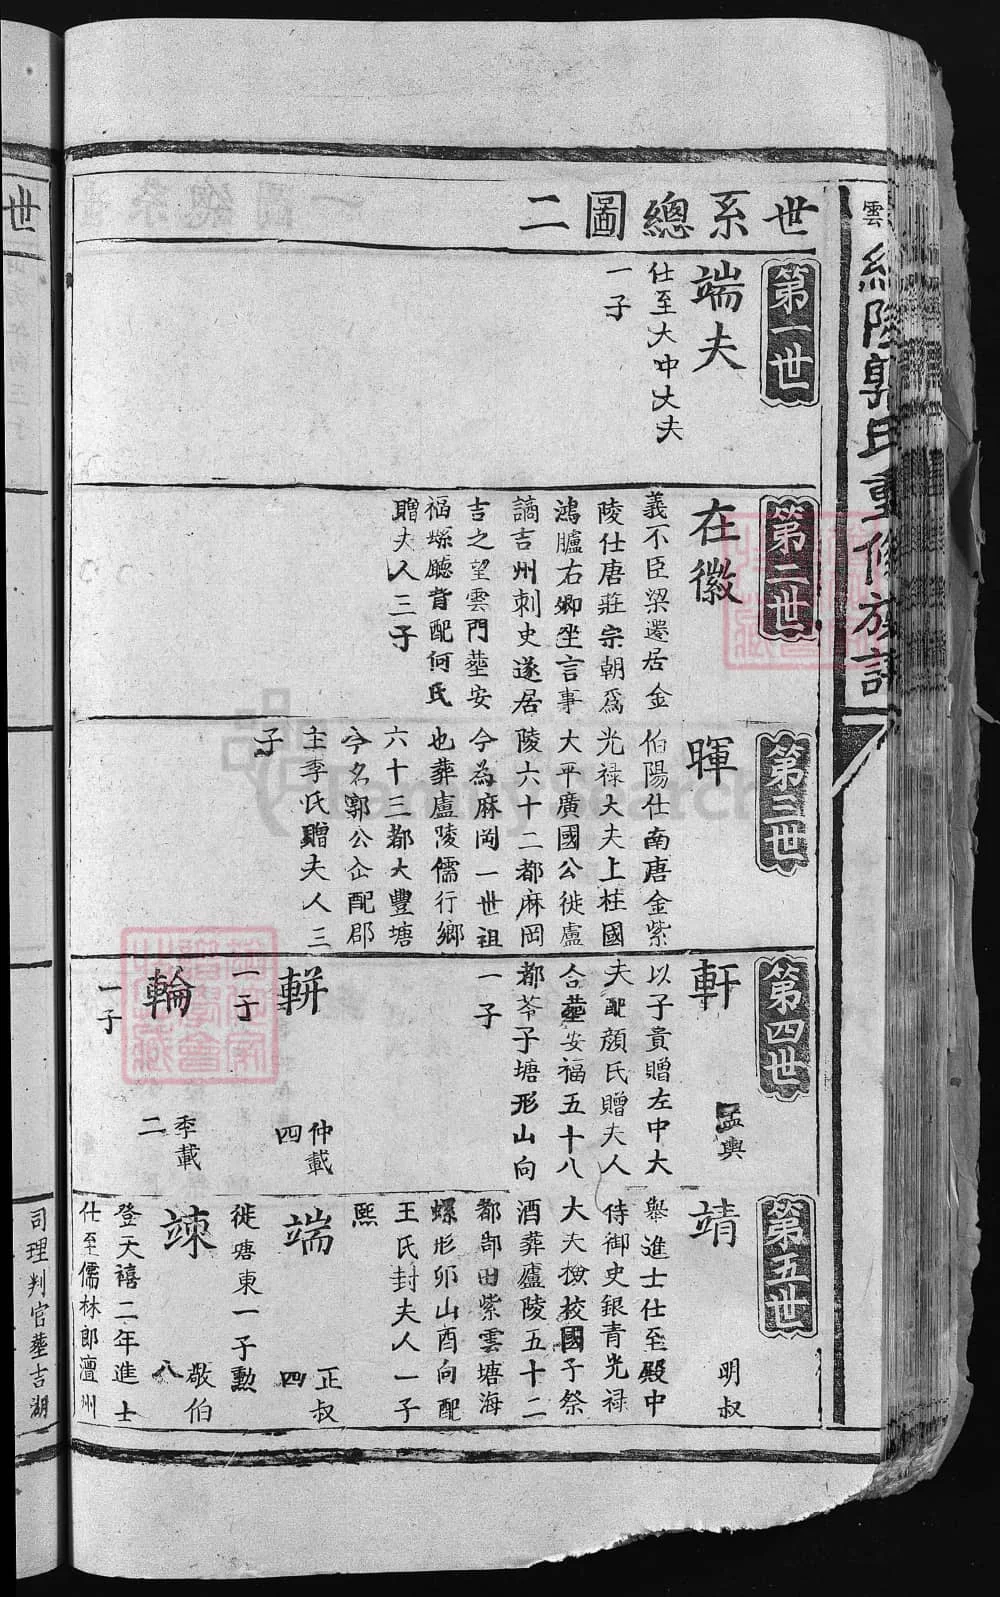 世系總圖二
第一世
端夫
仕至大中大夫
一子
第二世
在徽
義不臣梁遷居金
陵仕唐莊宗朝爲
鴻臚右卿坐言事
謫吉州刺史遂居
吉之望雲門塟安
福縣廳背配何氏
贈夫人三子
第三世
暉
伯陽仕南唐金紫
光禄大夫上柱國
大平廣國公徙盧
陵六十二都麻岡
今為麻岡一世祖
也葬盧陵儒行鄉
六十三都大豐塘
今名郭公仚配郡
主李氏贈夫人三
子
第四世
軒
孟輿
以子貴贈左中大
夫配顔氏贈夫人
合塟安福五十八
都苓子塘形山向
一子
輧
仲載
四
一子
輪
季載
二
一子
第五世
靖
明叔
舉進士仕至殿中
侍御史銀青光禄
大夫檢校國子祭
酒葬廬陵五十二
都郚田紫雲塘海
螺形卯山酉向配
王氏封夫人一子
熙
端
正叔
四
徙塘東一子勲
竦
敬伯
八
登天禧二年進士
仕至儒林郎澶州
世
司理判官塟吉湖
雲
郭氏重修族譜
FamilySearch